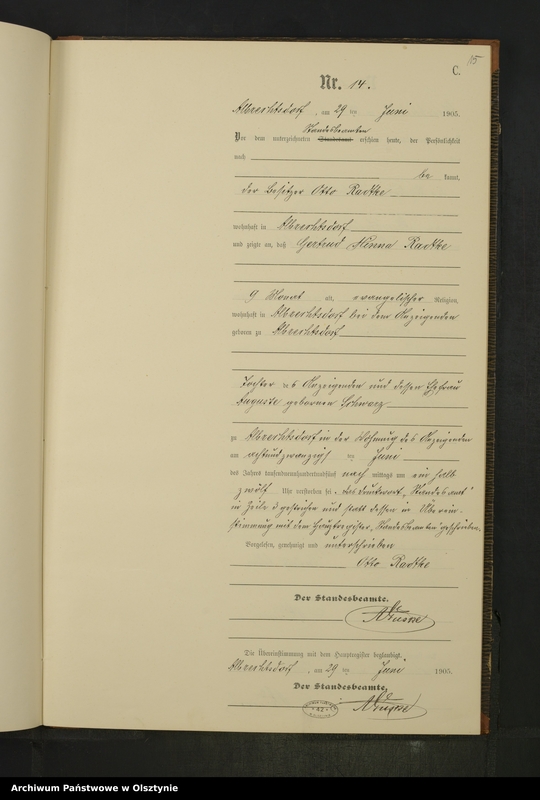 15
C.
Nr. 14.
Albrechtsdorf, am 29 ten Juni 1905.
Standesbeamten
Vor dem unterzeichneten Standesamt erschien heute, der Persönlichkeit
nach
be kannt,
der Besitzer Otto Radtke
wohnhaft in Albrechtsdorf
und zeigte an, daß Gertrud Minna Radtke
9 Monat alt, evangelischer Religion,
wohnhaft in Albrechtsdorf bei dem Anzeigenden
geboren zu Albrechtsdorf
Tochter des Anzeigenden und dessen Ehefrau
Auguste geborenen Schwarz
zu Albrechtsdorf in der Wohnung des Anzeigenden
am achtundzwanzigsten Juni
des Jahres tausendneunhundertundfünf nach mittags um ein halb
zwölf Uhr verstorben sei. Das Druckwort „Standesamt“
in Zeile 2 gestrichen und statt dessen in Überein-
stimmung mit dem Hauptregister „Standesbeamten“ geschrieben.
Vorgelesen, genehmigt und unterschrieben
Otto Radtke
Der Standesbeamte.
Die Übereinstimmung mit dem Hauptregister beglaubigt.
Albrechtsdorf, am 29 ten Juni 1905.
Der Standesbeamte.
Archiwum Państwowe w Olsztynie